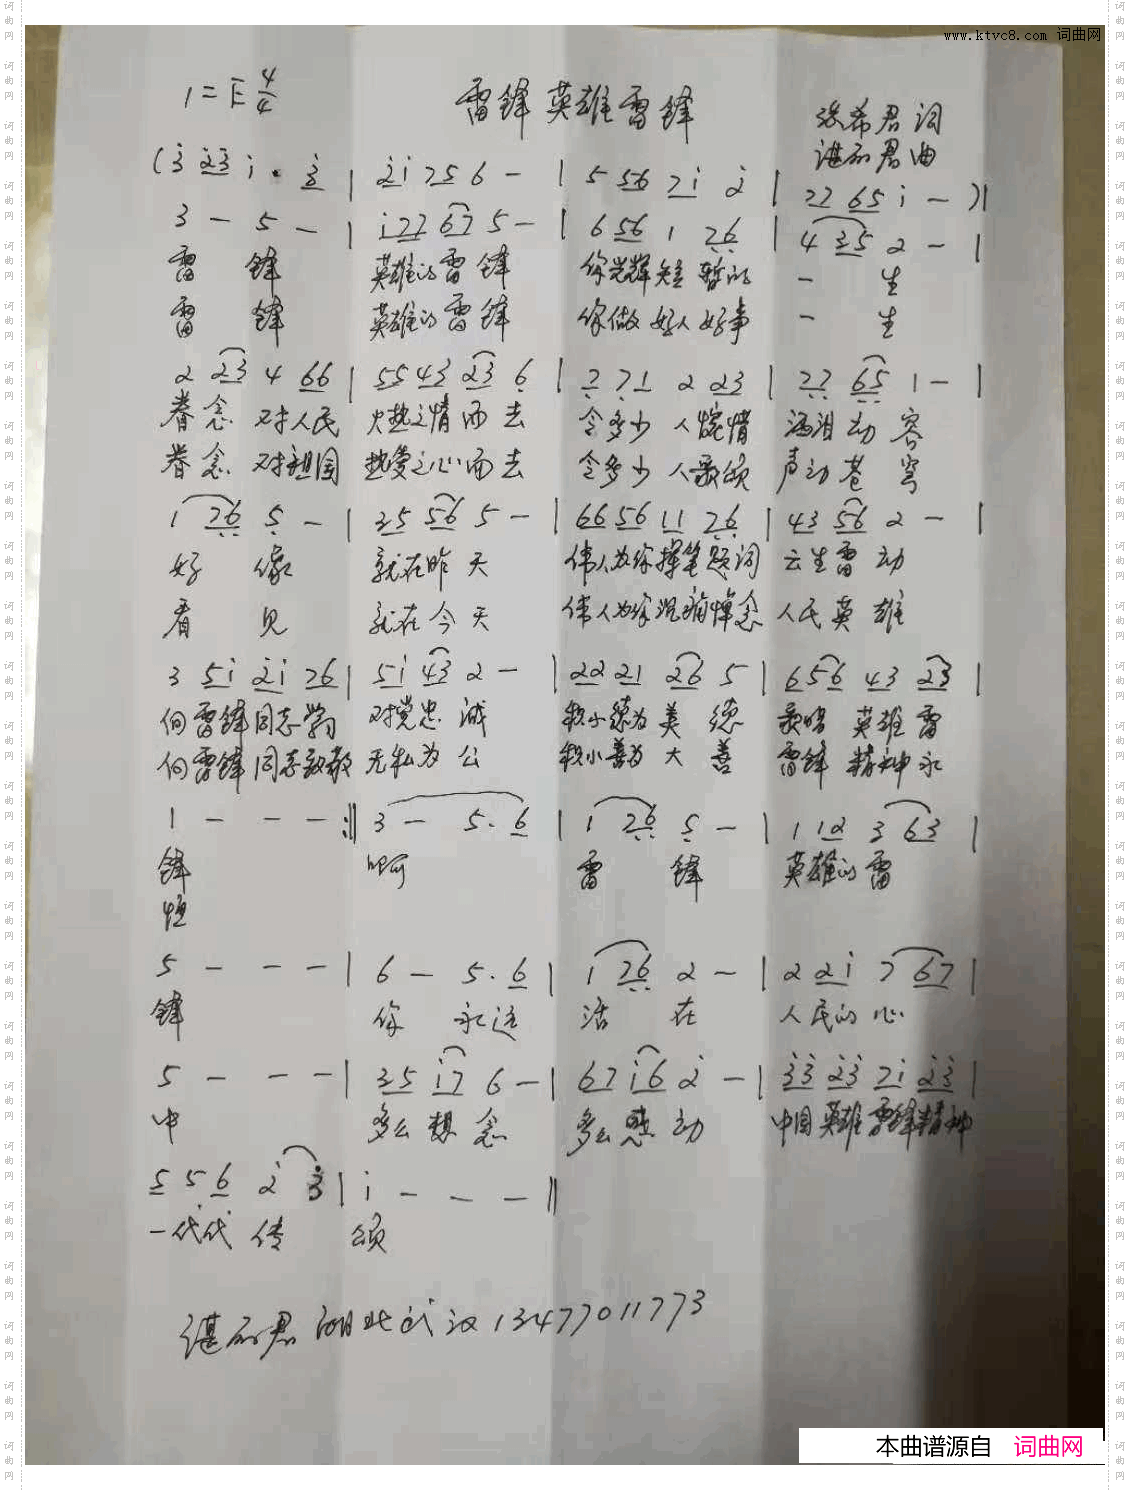 www.ktvc8.com 词曲网
1=E 4/4
雷锋英雄雷锋
张希君 词
谌丽君 曲
(3 23 i · 3 | 2i 75 6 - | 5 56 7i 2 | 77 65 i - )|
3 - 5 - | i77 67 5 - | 6 56 1 76 | 4 35 2 - |
雷 锋 英雄的雷 锋 你光辉短暂的 一 生
雷 锋 英雄的雷 锋 你做好人好事 一 生
2 23 4 66 | 55 43 23 6 | 7 71 2 23 | 77 65 1 - |
眷念 对人民 火热之情而去 令多少 人惋惜 洒泪动容
眷念 对祖国 热爱之心而去 令多少 人歌颂 声动苍穹
1 76 5 - | 35 56 5 - | 66 56 11 76 | 43 56 2 - |
好 像 就在昨 天 伟人为你挥笔题词 云生雷 动
看 见 就在今 天 伟人为你沉痛悼念 人民英 雄
3 5i 2i 76 | 5i 43 2 - | 22 21 26 5 | 656 43 23 |
向雷锋同志学习 对党忠 诚 积小德为美 德 英雄雷
向雷锋同志致敬 无私为 公 积小善为大 善 雷锋 精神永
1 - - - :|| 3 - 5· 6 | 1 76 5 - | 1 12 3 63 |
锋 啊 雷 锋 英雄的雷
恒
5 - - - | 6 - 5· 6 | 1 76 2 - | 2 2i 7 67 |
锋 你 永远 活 在 人民的心
5 - - - | 35 i7 6 - | 67 i6 2 - | 33 23 7i 23 |
中 多么想 念 多么感 动 中国英雄雷锋精神
5 5 6 2 3 | i - - - ||
一代代 传 颂
谌丽君 湖北武汉 13477011773
本曲谱源自 词曲网